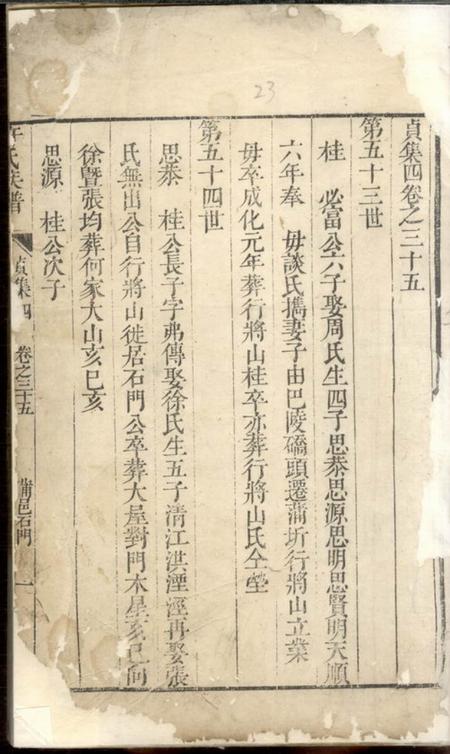 23
貞集四卷之三十五
第五十三世
桂 必富公六子娶周氏生四子思恭思源思明思賢明天順
六年奉 毋談氏携妻子由巴陵礄頭遷蒲圻行將山立業
毋卒成化元年葬行將山桂卒亦葬行將山氏仝塋
第五十四世
思恭 桂公長子字弗傳娶徐氏生五子清江洪湮涇再娶張
氏無出公自行將山徙居石門公卒葬大屋對門木星亥巳向
徐暨張均葬何家大山亥巳亥
思源 桂公次子
氏族譜 貞集四 卷之三十五 蒲邑石門 一